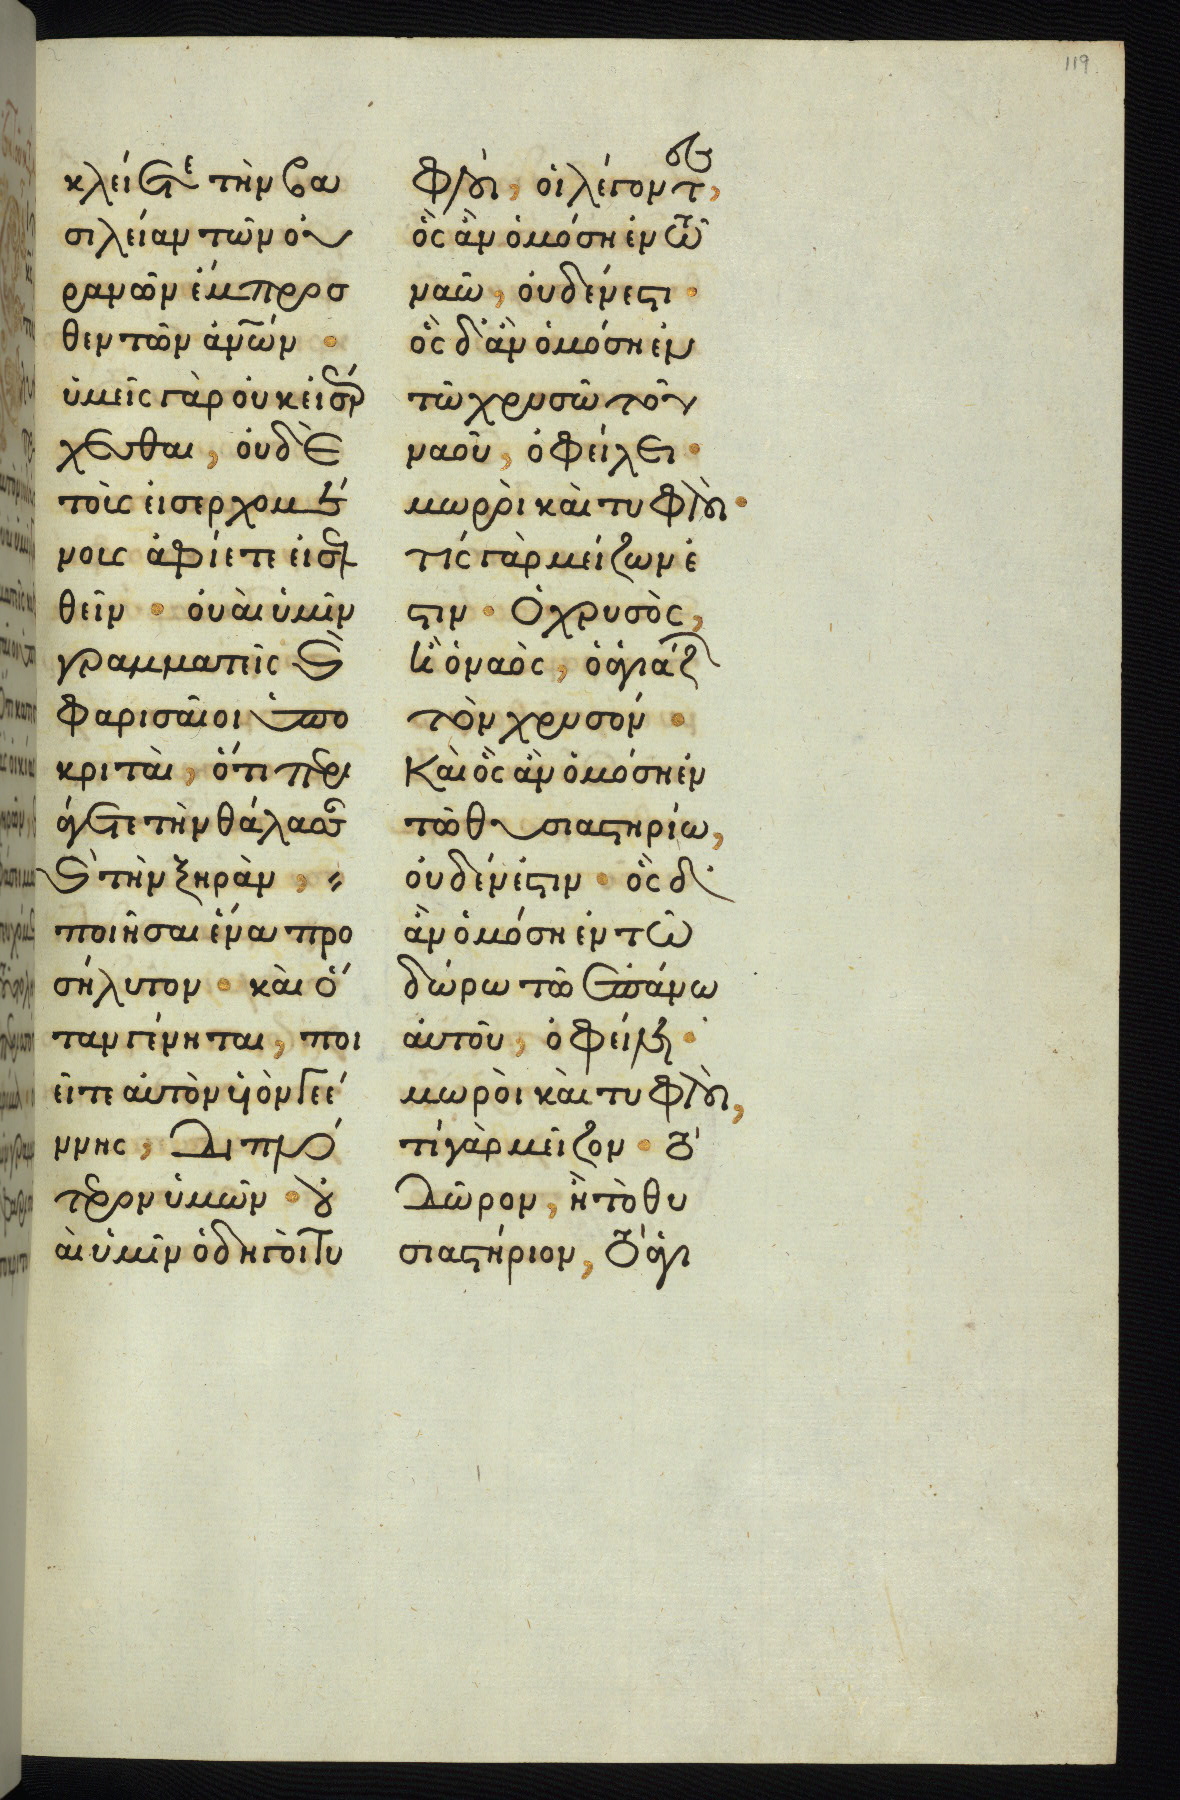 119
κλείετε τὴν βα
σιλείαν τῶν οὐ
ρανῶν ἔμπροσ
θεν τῶν ἀνῶν ·
ὑμεῖς γὰρ οὐκ εἰσέρ
χεσθαι, οὐδὲ
τοὶς εἰσερχομέ
νοις ἀφίετε εἰσελ
θεῖν · οὐαὶ ὑμῖν
γραμματεῖς καὶ
φαρισαῖοι ὑπο
κριταὶ, ὅτι περι
άγετε τὴν θάλασσαν
καὶ τὴν ξηρὰν,
ποιῆσαι ἕνα προ
σήλυτον · καὶ ὅ
ταν γένηται, ποι
εῖτε αὐτὸν υἱὸν γεέ
ννης, διπλό
τερον ὑμῶν · οὐ
αὶ ὑμῖν ὁδηγοὶ τυ
φλοὶ, οἱ λέγοντες,
ὃς ἂν ὀμόση ἐν τῶ
ναῶ, οὐδέν ἐστι ·
ὃς δ' ἂν ὀμόση ἐν
τῶ χρυσῶ τοῦ
ναοῦ, ὀφείλει ·
μωροὶ καὶ τυφλοὶ ·
τίς γὰρ μείζων ἐ
στιν · ὁ χρυσὸς,
ἢ ὁ ναὸς, ὁ ἁγιάζων
τὸν χρυσόν ·
Καὶ ὃς ἂν ὀμόση ἐν
τῶ θυσιαστηρίω,
οὐδέν ἐστιν · ὃς δ'
ἂν ὀμόση ἐν τῶ
δώρω τῶ ἐπάνω
αὐτοῦ, ὀφείλει ·
μωροὶ καὶ τυφλοὶ,
τί γὰρ μεῖζον · τὸ
δῶρον, ἢ τὸ θυ
σιαστήριον, τὸ ἁγι